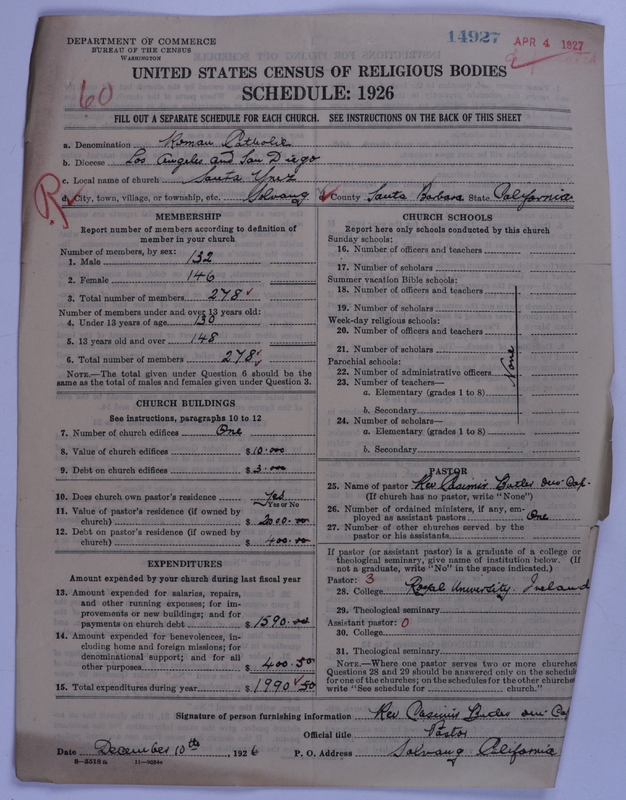 DEPARTMENT OF COMMERCE
BUREAU OF THE CENSUS
WASHINGTON
14927
APR 4 1927
60
UNITED STATES CENSUS OF RELIGIOUS BODIES
SCHEDULE: 1926
FILL OUT A SEPARATE SCHEDULE FOR EACH CHURCH. SEE INSTRUCTIONS ON THE BACK OF THIS SHEET
a. Denomination Roman Catholic
b. Diocese Los Angeles and San Diego
c. Local name of church Santa Ynez
R
d. City, town, village, or township, etc. Solvang County Santa Barbara State California
MEMBERSHIP
Report number of members according to definition of
member in your church
Number of members, by sex:
1. Male 132
2. Female 146
3. Total number of members 278
Number of members under and over 13 years old:
4. Under 13 years of age 130
5. 13 years old and over 148
6. Total number of members 278
NOTE.—The total given under Question 6 should be
same as the total of males and females given under Question 3.
CHURCH BUILDINGS
See instructions, paragraphs 10 to 12
7. Number of church edifices One
8. Value of church edifices $10.000
9. Debt on church edifices $3.000
10. Does church own pastor's residence Yes
Yes or No
11. Value of pastor's residence (if owned by
church) $2000.00
12. Debt on pastor's residence (if owned by
church) $400.00
EXPENDITURES
Amount expended by your church during last fiscal year
13. Amount expended for salaries, repairs,
and other running expenses; for im-
provements or new buildings; and for
payments on church debt $1590.00
14. Amount expended for benevolences, in-
cluding home and foreign missions; for
denominational support; and for all
other purposes $400.50
15. Total expenditures during year $1990 50
CHURCH SCHOOLS
Report here only schools conducted by this church
Sunday schools:
16. Number of officers and teachers
17. Number of scholars
Summer vacation Bible schools:
18. Number of officers and teachers
19. Number of scholars
Week-day religious schools:
20. Number of officers and teachers
21. Number of scholars
None
Parochial schools:
22. Number of administrative officers
23. Number of teachers—
a. Elementary (grades 1 to 8)
b. Secondary
24. Number of scholars—
a. Elementary (grades 1 to 8)
b. Secondary
PASTOR
25. Name of pastor Rev Casimir Butler O.M. Cap.
(If church has no pastor, write "None")
26. Number of ordained ministers, if any, em-
ployed as assistant pastors One
27. Number of other churches served by the
pastor or his assistants
If pastor (or assistant pastor) is a graduate of a college or
theological seminary, give name of institution below. (If
not a graduate, write "No" in the space indicated.)
Pastor: 3
28. College Royal University. Ireland
29. Theological seminary
Assistant pastor: 0
30. College
31. Theological seminary
NOTE.—Where one pastor serves two or more churches
Questions 28 and 29 should be answered only on the schedul
for one of the churches; on the schedules for the other churches
write "See schedule for church."
Signature of person furnishing information Rev. Casimir Butler O.M. Cap
Official title Pastor
Date December 10th, 1926 P. O. Address Solvang California
8-3518a 11-9984